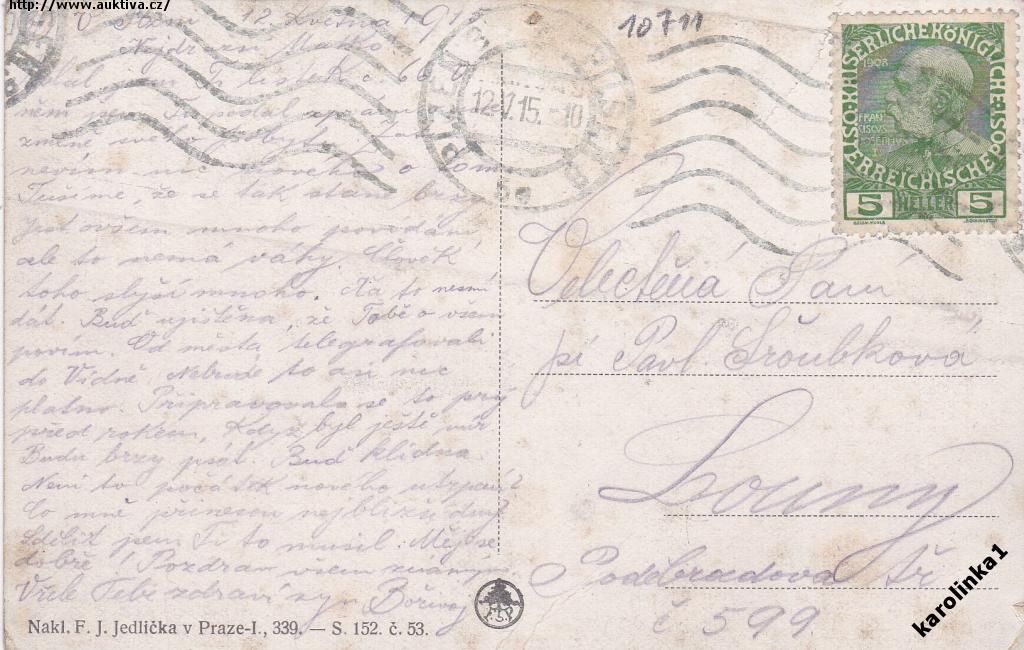 http://www.auktiva.cz/
V Písku 12. května 1915
10711
Nejdražší Matko
lístek č. 66. V
něm jsem Ti podal zprávu o
změně svého pobytu.
nevím nic nového o tom
Tušíme, že se tak stane brzy
jest ovšem mnoho povídání,
ale to nemá váhy. Člověk
toho slyší mnoho. Na to nesmí
dát. Buď ujištěna, že Tobě o všem
povím. Od města telegrafovali
do Vídně. Nebude to asi nic
platno. Připravovalo se to prý
před rokem, když byl ještě mír
Budu brzy psát. Buď klidna.
Není to počátek nového utrpení?
Co mně přinesou nejbližší dny?
Sdělit jsem Ti to musil. Měj se
dobře! Pozdrav všem známým
Vřele Tebe zdraví syn Bořivoj
PÍSEK
PISEK
12.V.15.-10
KAISERLICHE KÖNIGLICHE
ÖSTERREICHISCHE POST
1908
FRAN
CISCVS
IOSEPHVS I
5 HELLER 5
Velectěná Paní
pí Pavl. Šroubková
Louny
Poděbradova tř.
č 599
F.J.P.
Nakl. F. J. Jedlička v Praze-I., 339. — S. 152. č. 53.
karolinka1